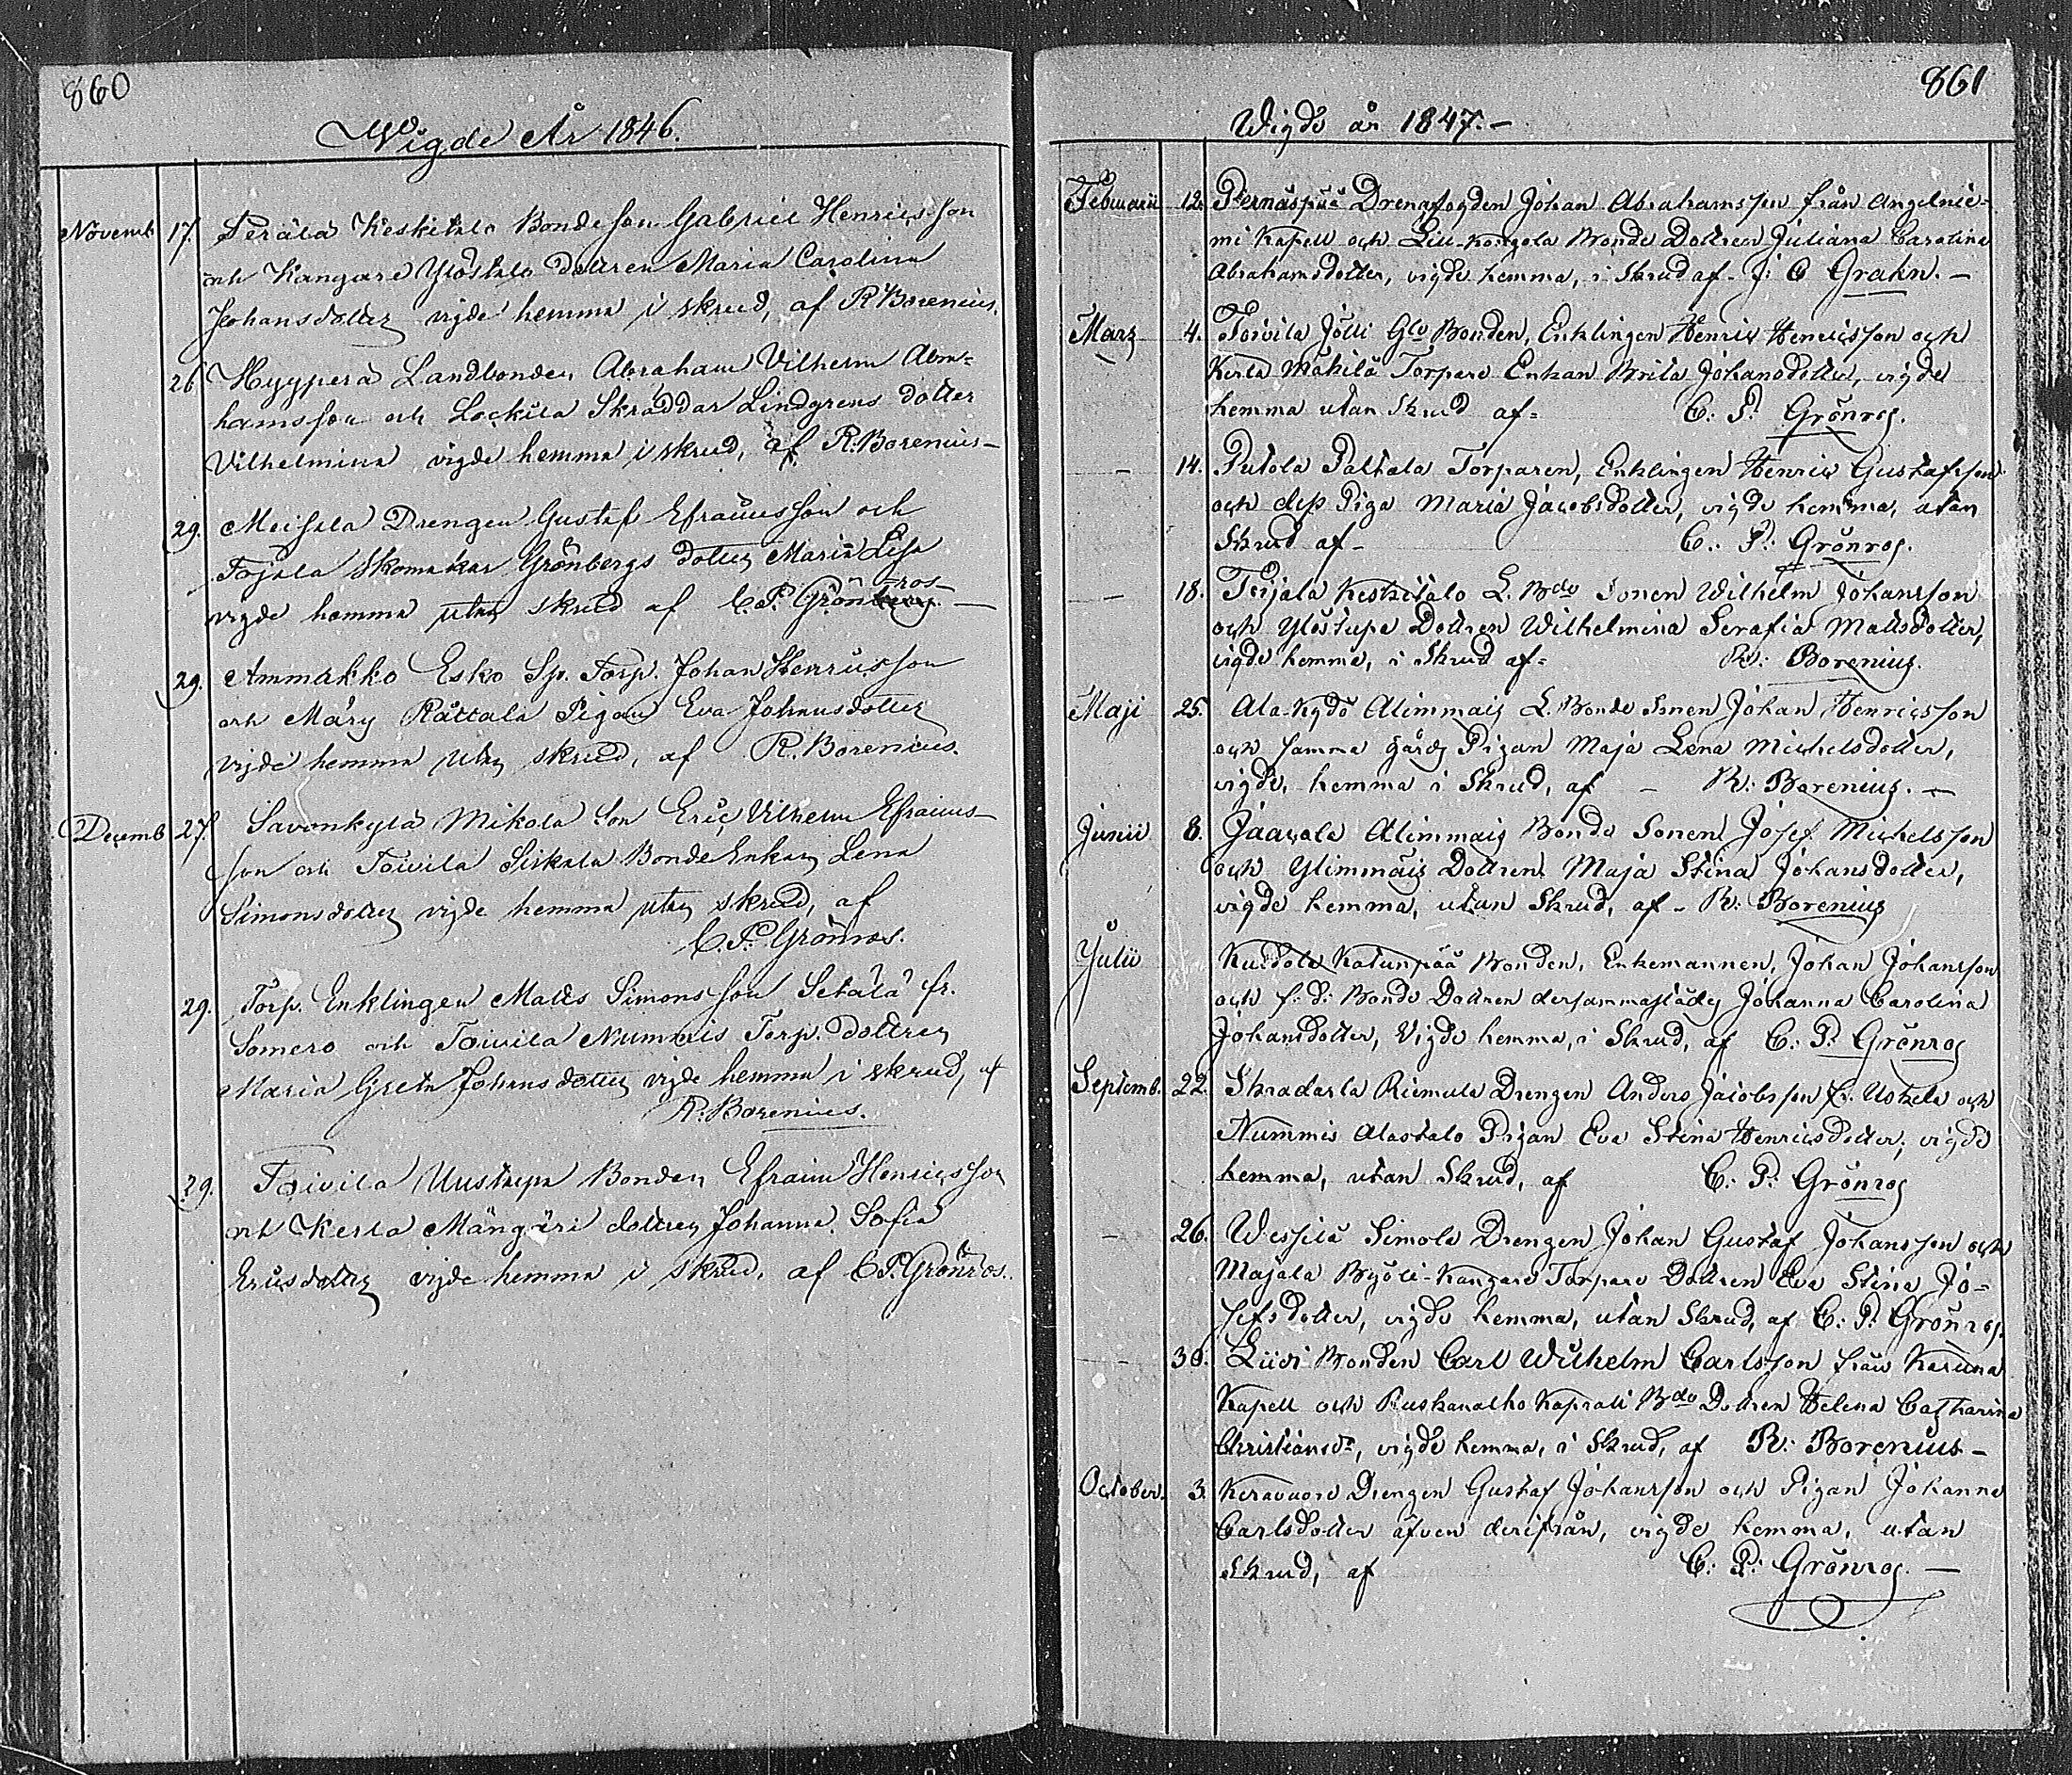 860
Wigde År 1846.
Novemb 17. Perälä Keskitalo Bondeson Gabriel Henricsson
och Kangare Ylöstalo dottren Maria Carolina
Johansdotter vigde hemma i skrud, af R Borenius.
26 Hyyperä Landbonden Abraham Vilhelm Abra-
hamsson och Lockila Skräddar Lindgrens dotter
Vilhelmina vigde hemma i skrud, af R. Borenius-
29. Meisala Drengen Gustaf Efraimsson och
Tojala Skomakar Grönbergs dotter Maria Lisa
vigde hemma utan skrud af C. P. Grönros —
29. Ammakko Esko Sp. Torp. Johan Henricsson
och Märy Rättala Pigan Eva Johansdotter
vigde hemma utan skrud, af R. Borenius.
Decemb 27. Savonkylä Mikola Son Eric Vilhelm Efraims-
son och Toivila Siskala Bonde Enkan Lena
Simonsdotter vigde hemma utan skrud, af
C. P. Grönros.
29. Torp. Enklingen Matts Simonsson Setälä fr.
Somero och Toivila Nummis Torp. dottren
Maria Greta Johansdotter vigde hemma i skrud, af
R. Borenius.
29. Toivila Uustupa Bonden Efraim Henricsson
och Kerla Mängäri dottren Johanna Sofia
Ericsdotter vigde hemma i skrud, af C. P. Grönros.
861
Wigde år 1847. —
Februarii 12. Pernäspää Drengfogden Johan Abrahamsson från Angelnie-
mi Kapell och Lill-Kongola Bonde Dottren Juliana Carolina
Abrahamsdotter, vigde hemma, i Skrud af J: C Grahn. —
Mars 4. Toivila Jölli Bonden, Enklingen Henric Henricsson och
Kerla Mäkilä Torpare Enkan Brita Johansdotter, vigde
hemma utan Skrud af= C: P: Grönros.
— 14. Putola Paltala Torparen, Enklingen Henric Gustafsson
och dess Piga Maria Jacobsdotter, vigde hemma, utan
Skrud af - C: P: Grönros.
— 18. Keskitalo L. Bde Sonen Wilhelm Johansson
och Ylöstupa Dottren Wilhelmina Serafia Mattsdotter,
vigde hemma, i Skrud af= R: Borenius.
Maji 25. Ala-Kydö Alimmais L. Bonde Sonen Johan Henricsson
och samma gårds Pigan Maja Lena Michelsdotter,
vigde, hemma i Skrud, af — R: Borenius. —
Junii 8. Jaacala Alimmais Bonde Sonen Josef Michelsson
och Ylimmäis Dottren Maja Stina Johansdotter,
vigde hemma, utan Skrud, af - R: Borenius
Julii Kuttola Katunpää Bonden, Enkemannen, Johan Johansson
och f: d: Bonde Dottren dersammastädes Johanna Carolina
Johansdotter, Vigde hemma, i Skrud, af C: P: Grönros
Septemb. 22. Skradarla Riimula Drengen Anders Jacobsson fr. Uskela och
Nummis Alastalo Pigan Eva Stina Henricsdotter, vigde
hemma, utan Skrud, af C: P: Grönros
— 26. Simola Drengen Johan Gustaf Johansson och
Majala Byöli-Kangare Torpare Dottren Eva Stina Jo-
sefsdotter, vigde hemma, utan Skrud, af C: P: Grönros.
— 30. Liedi Bonden Carl Wilhelm Carlsson från Karuna
Kapell och Ruskanalho Kaprali Bde Dottren Helena Catharina
Christiansdr, vigde hemma, i Skrud, af R: Borenius —
October. 3. Keravuore Drengen Gustaf Johansson och Pigan Johanna
Carlsdotter äfven derifrån, vigde hemma, utan
Skrud, af C: P: Grönros. —